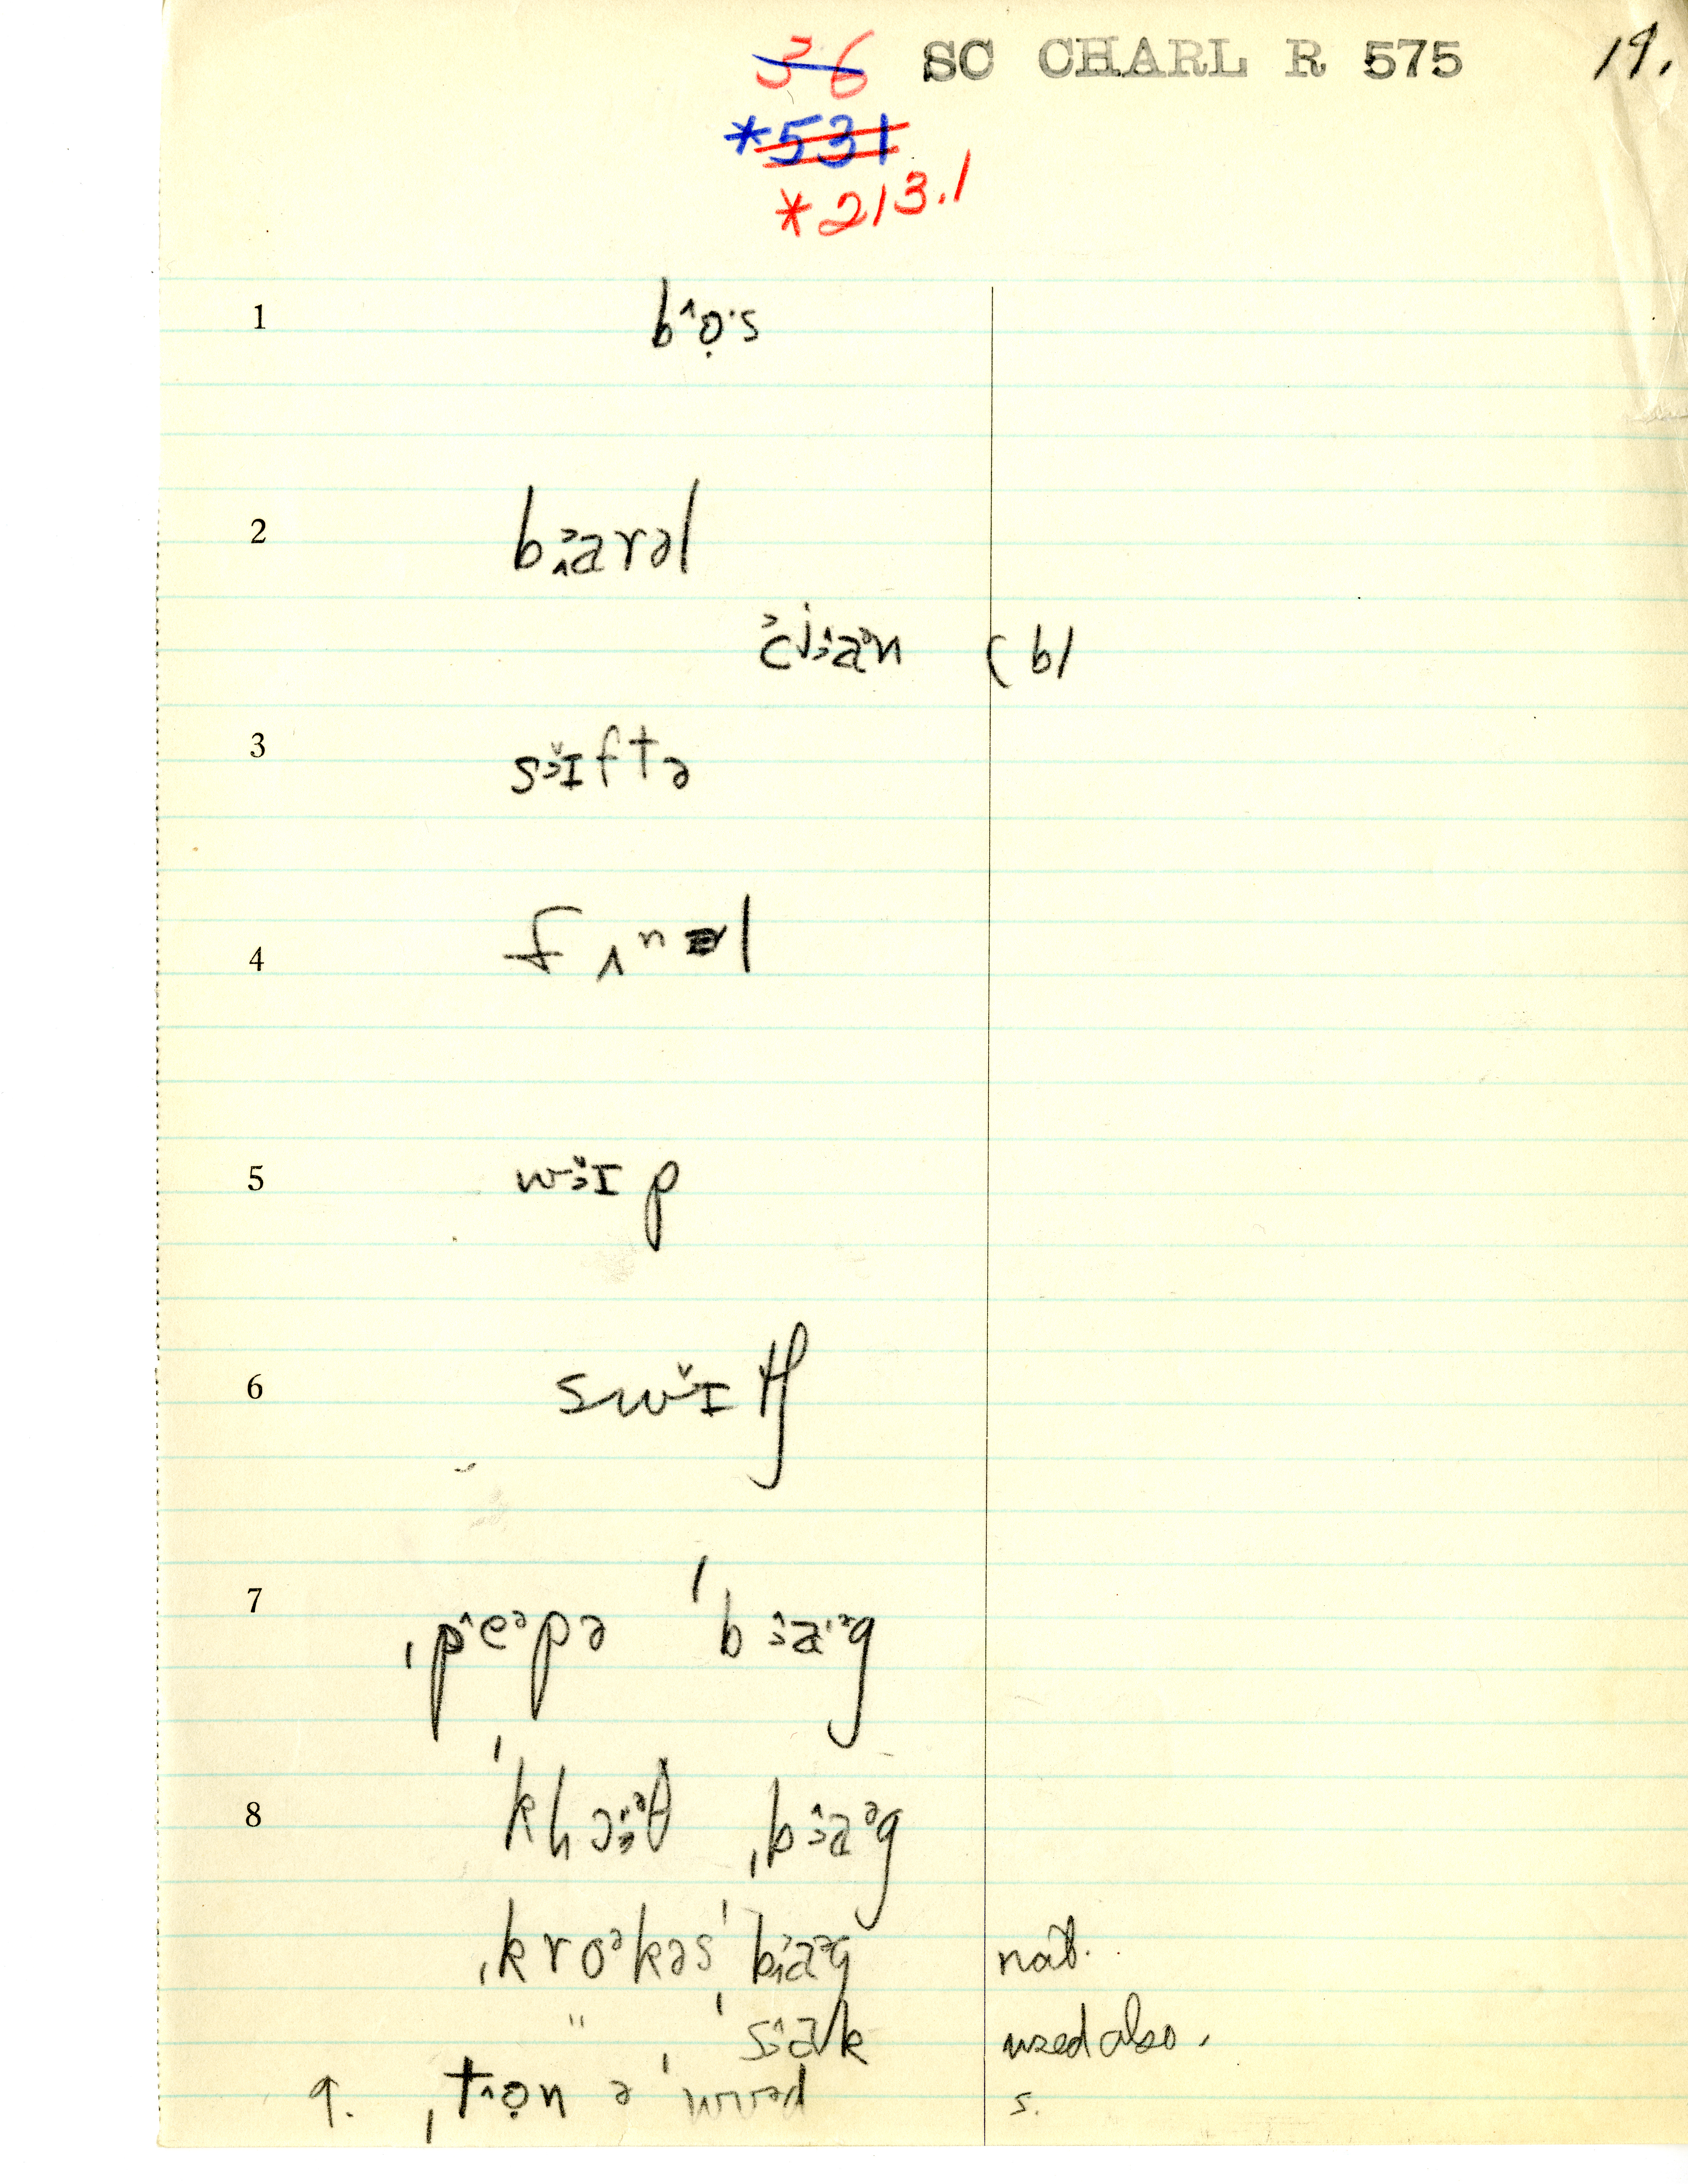 36 SC CHARL R 575 19.
*531
*213.1
1 b^ọ·s
2 barəl
(b)
3 sɪftə
4 fʌnəl
5 wɪp
6 swɪtʃ
7 ˌpeᵊpə ˈbag
8 ˈkhɔᵊθ ˌbaᵊg
ˌkroᵊkəs ˈbaᵊg nat.
" ˈsak used also.
9. ˌtọn ə ˈwud s.